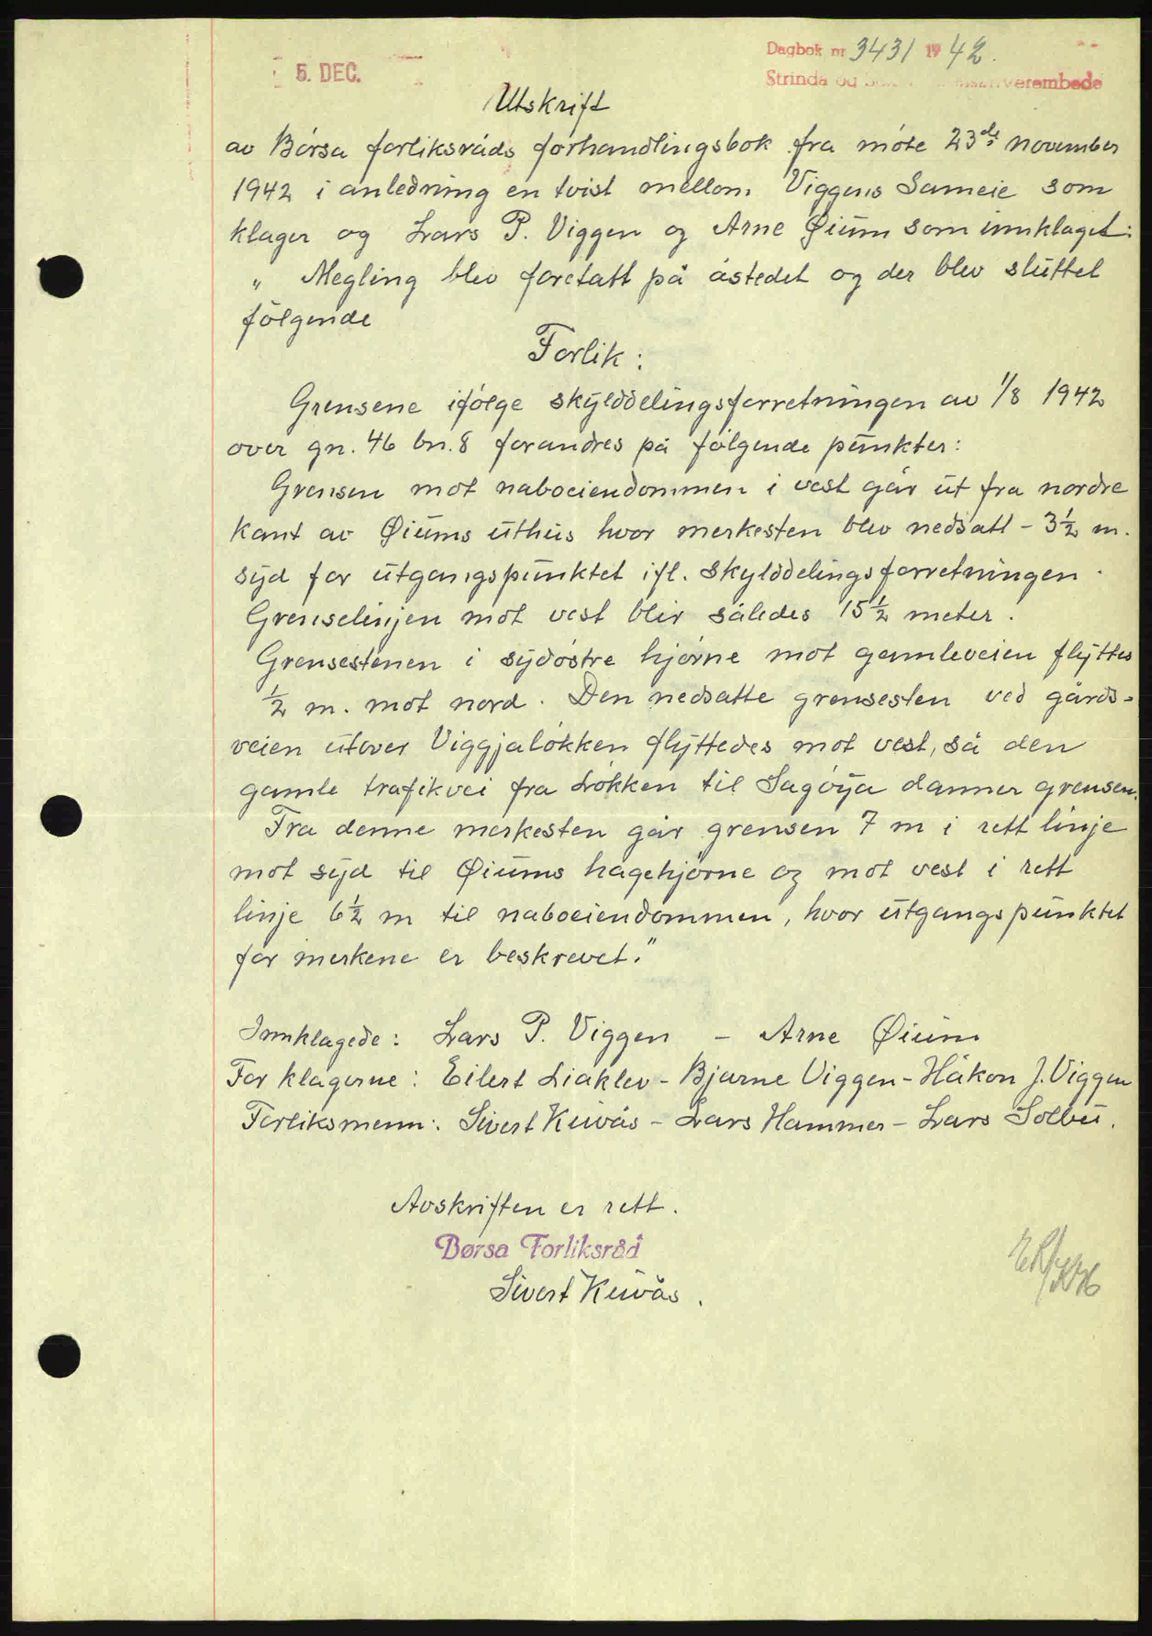 5. DEC.
Dagbok nr 3431 1942.
Strinda og
Utskrift
av Børsa forliksråds forhandlingsbok fra møte 23de november
1942 i anledning en tvist mellom Viggens Sameie som
klager og Lars P. Viggen og Arne Øium som innklaget:
" Megling blev foretatt på åstedet og der blev sluttet
følgende
Forlik:
Grensene ifølge skylddelingsforretningen av 1/8 1942
over gn. 46 bn. 8 forandres på følgende punkter:
Grensen mot naboeiendommen i vest går ut fra nordre
kant av Øiums uthus hvor merkesten blev nedsatt - 3 1/2 m.
syd for utgangspunktet ifl. skylddelingsforretningen.
Grenselinjen mot vest blir således 15 1/2 meter.
Grensestenen i sydøstre hjørne mot gamleveien flyttes
1/2 m. mot nord. Den nedsatte grensesten ved gårds-
veien utover Viggjaløkken flyttedes mot vest, så den
gamle trafikvei fra Løkken til Sagøya danner grensen.
Fra denne merkesten går grensen 7 m i rett linje
mot syd til Øiums hagehjørne og mot vest i rett
linje 6 1/2 m til naboeiendommen, hvor utgangspunktet
for merkene er beskrevet."
Innklagede: Lars P. Viggen - Arne Øium
For klagerne: Eilert Liaklev - Bjarne Viggen - Håkon J. Viggen
Forliksmenn: Sivert Kuvås - Lars Hammer - Lars Solbu.
Avskriften er rett.
Børsa Forliksråd
Sivert Kuvås.